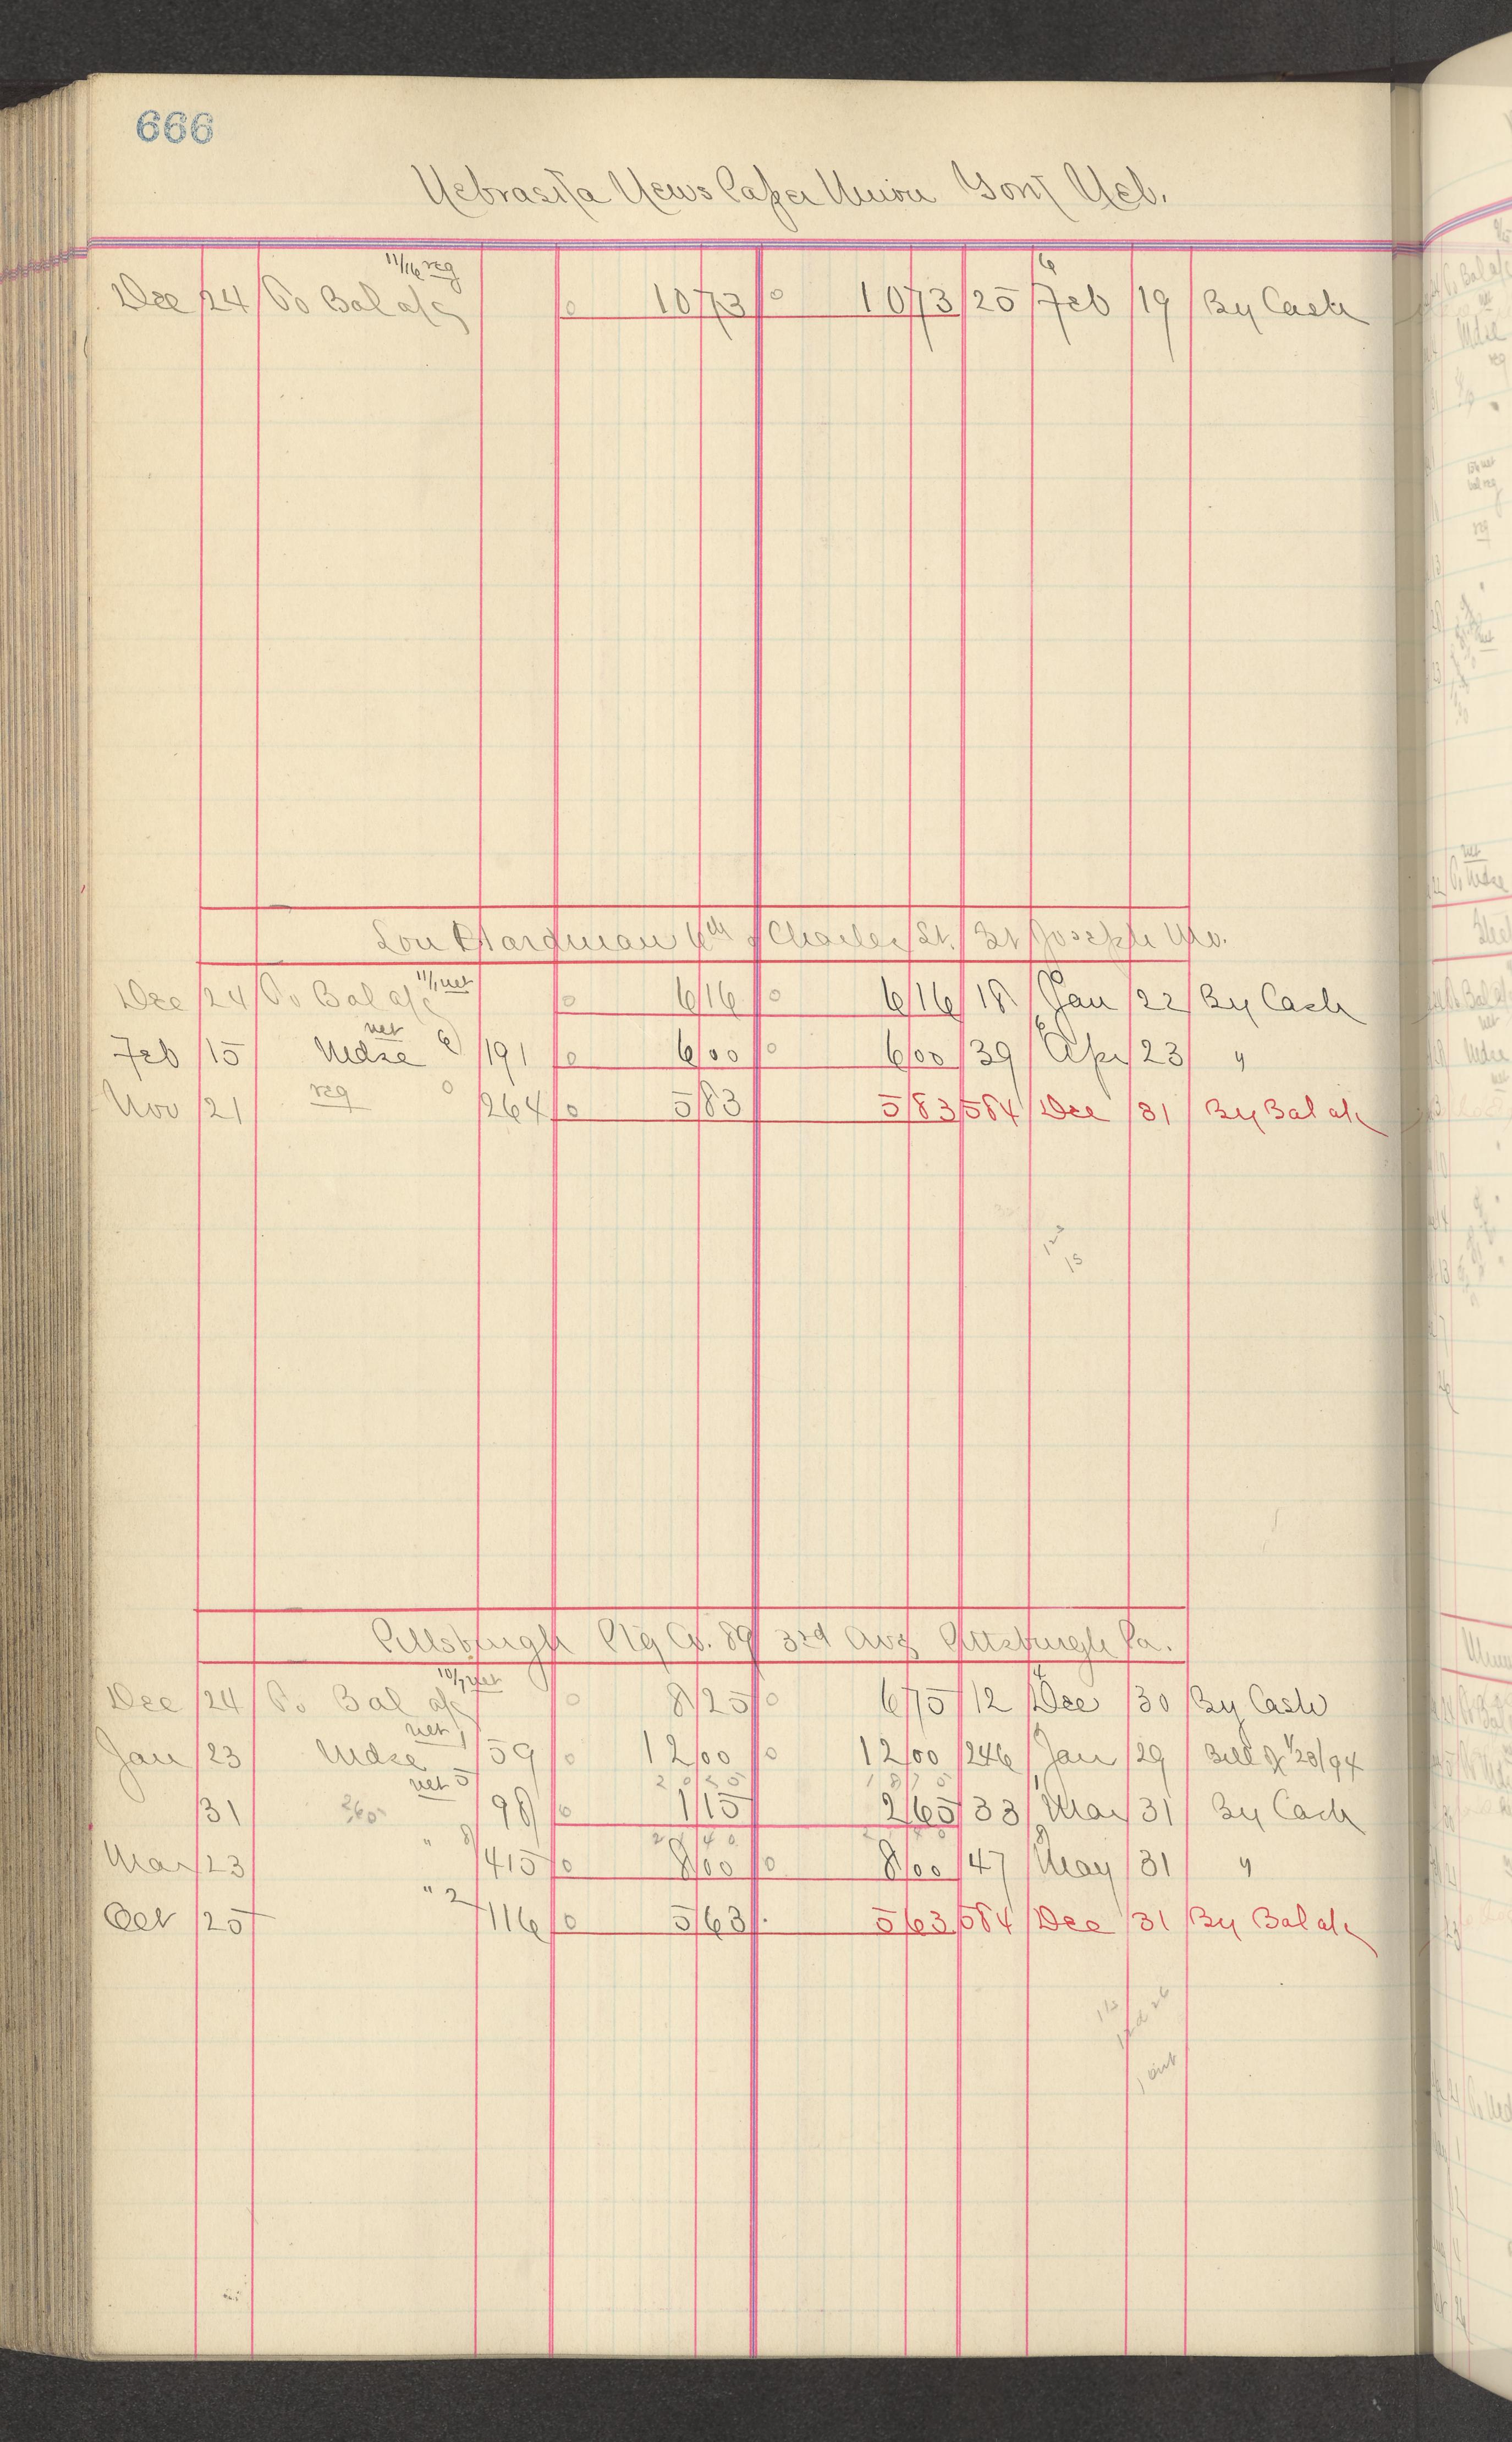 666
Nebrasita News Paper Union York Neb.
11/16 reg 6
Dec 24 To Bal a/c 0 10 73 0 10 73 25 Feb 19 By Cash
Lou Hardman 6th & Charles St. St Joseph Mo.
11/1 net
Dec 24 To Bal a/c 0 6 16 0 6 16 18 Jan 22 By Cash
net 6
Feb 15 Mdse 191 0 6 00 0 6 00 39 Apr 23 "
Nov 21 reg 0 264 0 5 83 5 83 584 Dec 31 By Bal a/c
15
Pittsburgh Ptg Co. 89 3rd Ave Pittsburgh Pa.
10/7 net
Dec 24 To Bal a/c 0 8 25 0 6 75 12 Dec 30 By Cash
net 1
Jan 23 Mdse 59 0 12 00 0 12 00 246 Jan 29 Bill of 1/23/94
net 5 20 25 18 75
31 98 0 1 15 2 65 33 Mar 31 By Cash
" 8 21 40
Mar 23 415 0 8 00 0 8 00 47 May 31 "
" 2
Oct 25 116 0 5 63 5 63 584 Dec 31 By Bal a/c
out